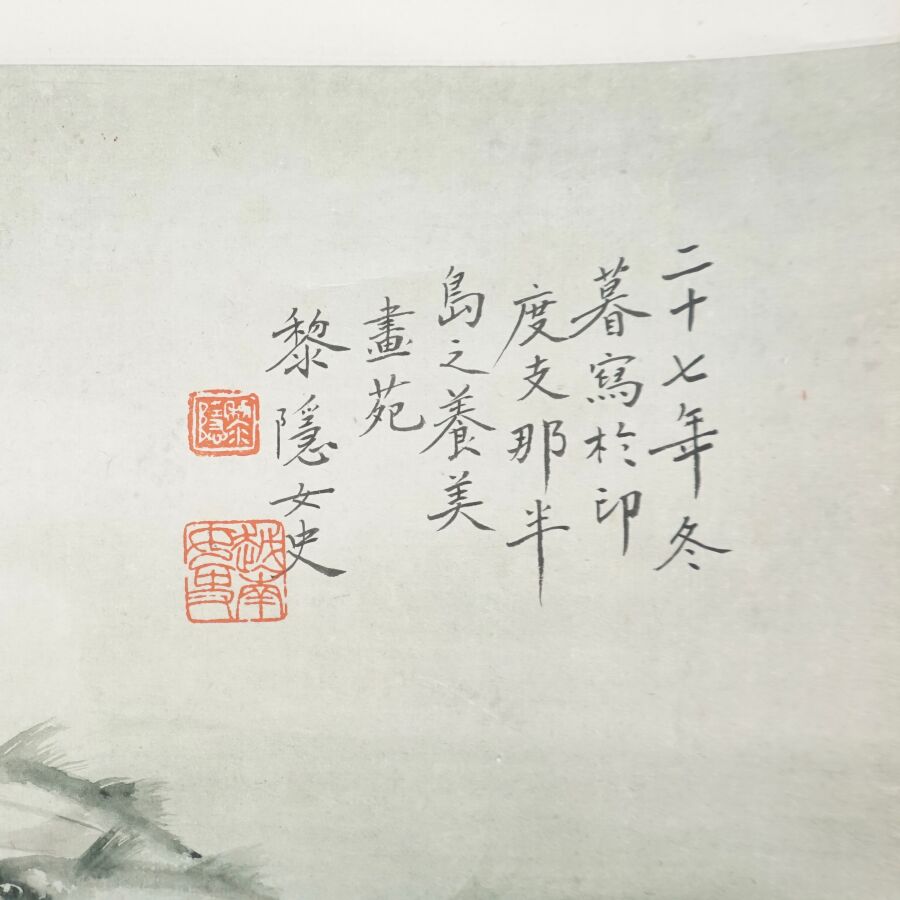 二十七年冬
暮寫於印
度支那半
島之養美
畫苑
黎隱女史
黎隱
越南